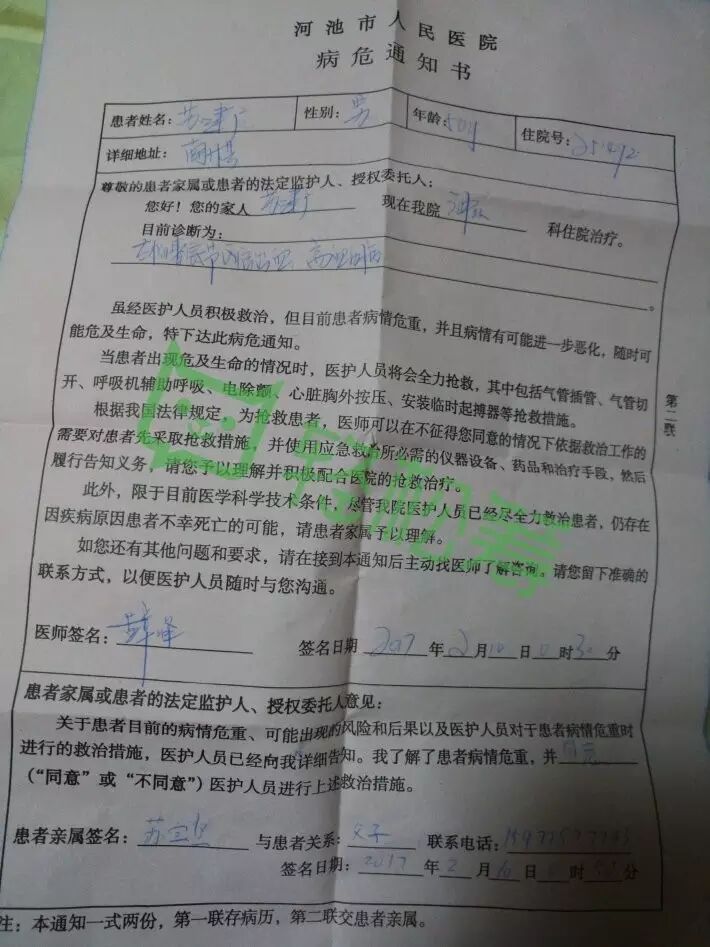 河池市人民医院
病危通知书
患者姓名: 性别: 男 年龄: 50y 住院号:
详细地址:
尊敬的患者家属或患者的法定监护人、授权委托人:
您好! 您的家人 现在我院 科住院治疗。
目前诊断为:
。
虽经医护人员积极救治,但目前患者病情危重,并且病情有可能进一步恶化,随时可
能危及生命,特下达此病危通知。
当患者出现危及生命的情况时,医护人员将会全力抢救,其中包括气管插管、气管切
开、呼吸机辅助呼吸、电除颤、心脏胸外按压、安装临时起搏器等抢救措施。
根据我国法律规定,为抢救患者,医师可以在不征得您同意的情况下依据救治工作的
需要对患者先采取抢救措施,并使用应急救治所必需的仪器设备、药品和治疗手段,然后
履行告知义务,请您予以理解并积极配合医院的抢救治疗。
此外,限于目前医学科学技术条件,尽管我院医护人员已经尽全力救治患者,仍存在
因疾病原因患者不幸死亡的可能,请患者家属予以理解。
如您还有其他问题和要求,请在接到本通知后主动找医师了解咨询。请您留下准确的
联系方式,以便医护人员随时与您沟通。
第二联
轻松筹
医师签名: 签名日期 2017 年 2 月 10 日 0 时 30 分
患者家属或患者的法定监护人、授权委托人意见:
关于患者目前的病情危重、可能出现的风险和后果以及医护人员对于患者病情危重时
进行的救治措施,医护人员已经向我详细告知。我了解了患者病情危重,并 同意
(“同意”或“不同意”)医护人员进行上述救治措施。
患者亲属签名: 与患者关系: 父子 联系电话:
签名日期: 2017 年 2 月 日 0 时 分
注:本通知一式两份,第一联存病历,第二联交患者亲属。